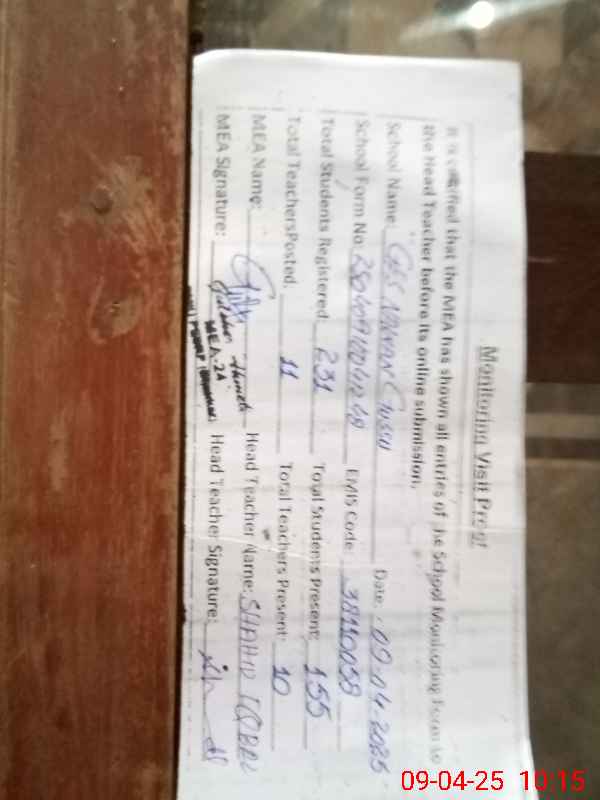 Monitoring Visit Proof
It is certified that the MEA has shown all entries of the School Monitoring Form to
the Head Teacher before its online submission.
School Name: GES Date: 09.04.2025
School Form No: EMIS Code: 38110058
Total Students Registered: 231 Total Students Present: 155
Total Teachers Posted: 11 Total Teachers Present: 10
MEA Name: Head Teacher Name: SHAHID IQBAL
MEA Signature: Head Teacher Signature:
MEA-24
09-04-25 10:15